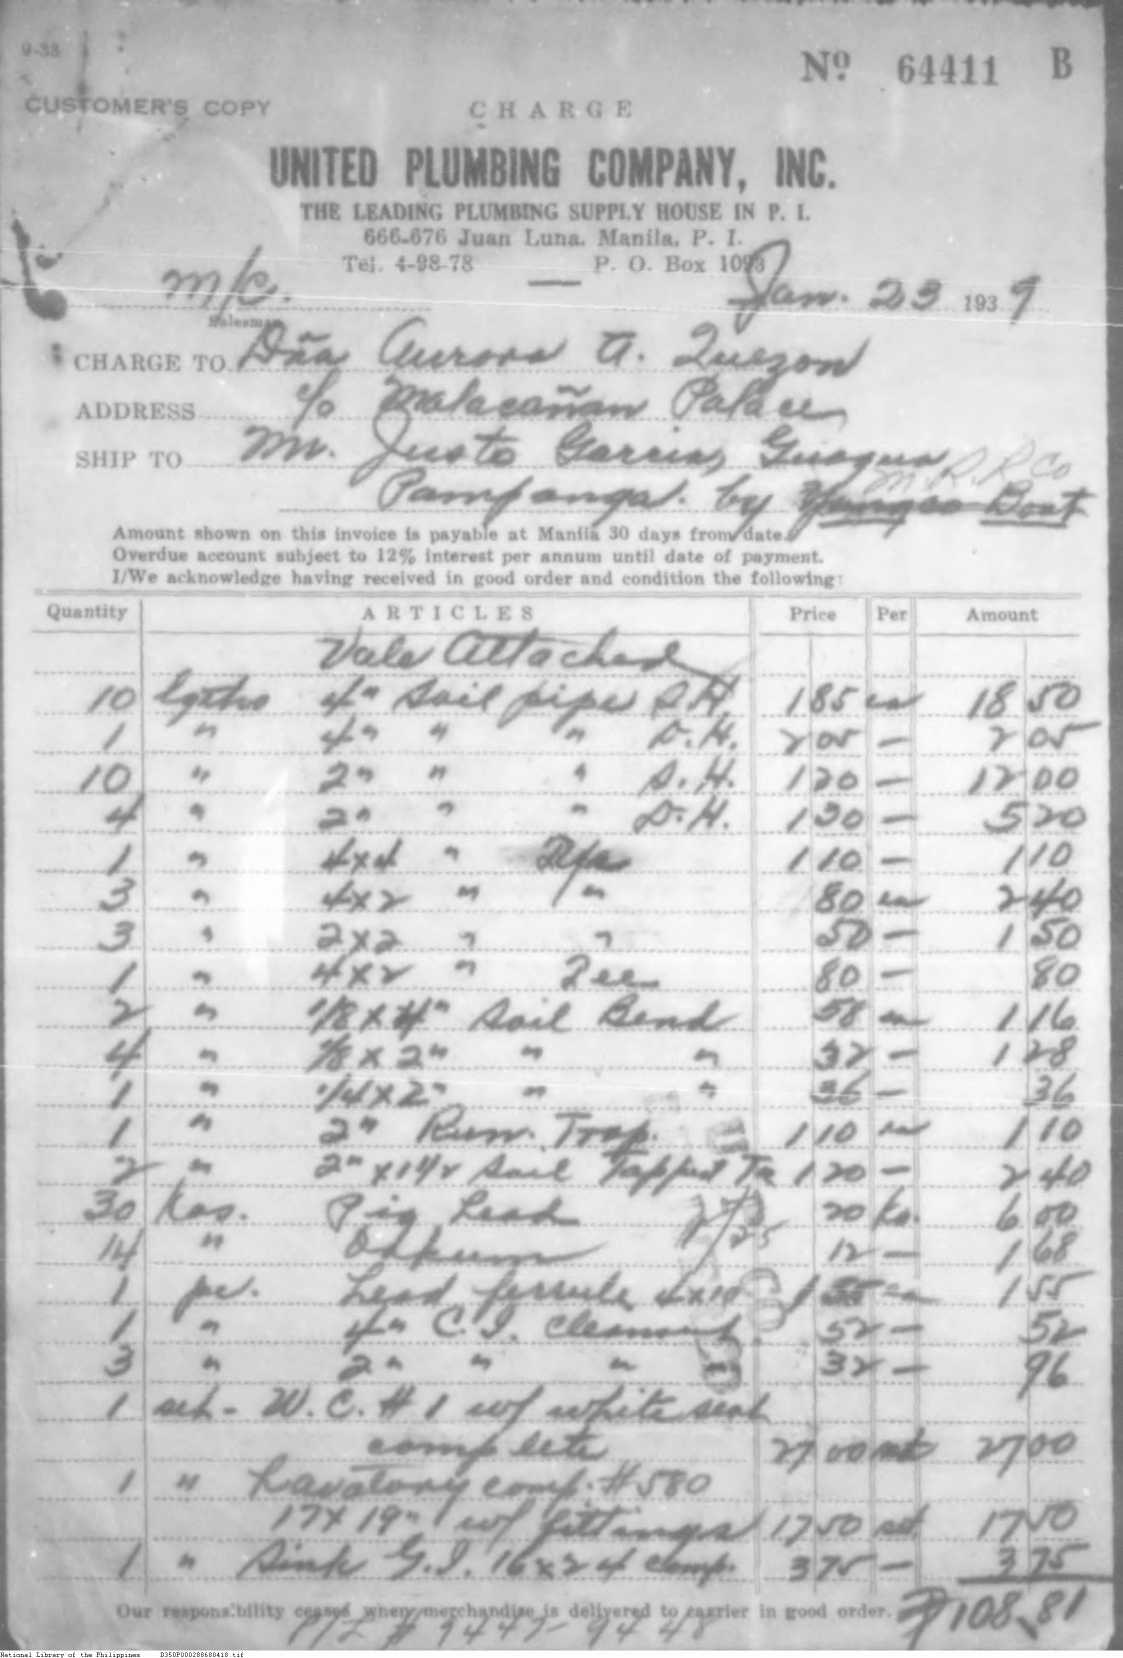 9-38
Nº 64411 B
CUSTOMER'S COPY
CHARGE
UNITED PLUMBING COMPANY, INC.
THE LEADING PLUMBING SUPPLY HOUSE IN P. I.
666-676 Juan Luna, Manila, P. I.
Tel. 4-98-78 P. O. Box 1093
Jan. 23 1939
Salesman
CHARGE TO Dña Aurora A. Quezon
ADDRESS c/o Malacañan Palace
SHIP TO Mr. Justo Garcia, Guagua
M. R. R. Co
Pampanga. by Boat
Amount shown on this invoice is payable at Manila 30 days from date.
Overdue account subject to 12% interest per annum until date of payment.
I/We acknowledge having received in good order and condition the following:
Quantity ARTICLES Price Per Amount
Vale Attached
10 lgths 4" Soil pipe S.H. 1 85 ea 18 50
1 " 4" " " D.H. 2 05 — 2 05
10 " 2" " " S.H. 1 20 — 12 00
4 " 2" " " D.H. 1 30 — 5 20
1 " 4x4 " 1 10 — 1 10
3 " 4x2 " " 80 ea 2 40
3 " 2x2 " " 50 — 1 50
1 " 4x2 " Tee 80 — 80
2 " 1/8 x 4" Soil Bend 58 ea 1 16
4 " 1/8 x 2" " " 32 — 1 28
1 " 1/4 x 2" " " 36 — 36
1 " 2" Run. Trap. 1 10 ea 1 10
2 " 2" x 1 1/2 Soil Tapped Tee 1 20 — 2 40
30 Kos. Pig Lead 20 Ko. 6 00
14 " Oakum 12 — 1 68
1 pc. Lead ferrule 4x10 1 55 ea 1 55
1 " 4" C.I. Cleanout 52 — 52
3 " 2" " " " 32 — 96
1 set - W.C. #1 w/ white seat
complete 27 00 set 27 00
1 " Lavatory comp. #580
17 x 19" w/ fittings 17 50 set 17 50
1 " Sink G.I. 16x24 comp. 3 75 — 3 75
Our responsibility ceases when merchandise is delivered to carrier in good order. ₱108.81
# 9447-9448
National Library of the Philippines D350P000288680418.tif